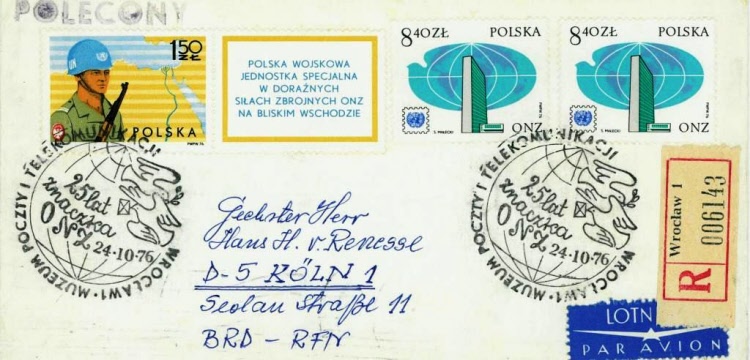 POLECONY
1.50 ZŁ
UN
POLSKA
POLSKA WOJSKOWA
JEDNOSTKA SPECJALNA
W DORAŹNYCH
SIŁACH ZBROJNYCH ONZ
NA BLISKIM WSCHODZIE
8.40ZŁ POLSKA
S. MAŁECKI
ONZ
8.40ZŁ POLSKA
S. MAŁECKI
ONZ
MUZEUM POCZTY I TELEKOMUNIKACJI
25 lat
znaczka
ONZ 24-10-76
WROCŁAW1
MUZEUM POCZTY I TELEKOMUNIKACJI
25 lat
znaczka
ONZ 24-10-76
WROCŁAW1
Geehrter Herr
Hans H. v. Renesse
D-5 KÖLN 1
Straße 11
BRD - RFN
R
Wrocław 1
006143
LOTN
PAR AVION